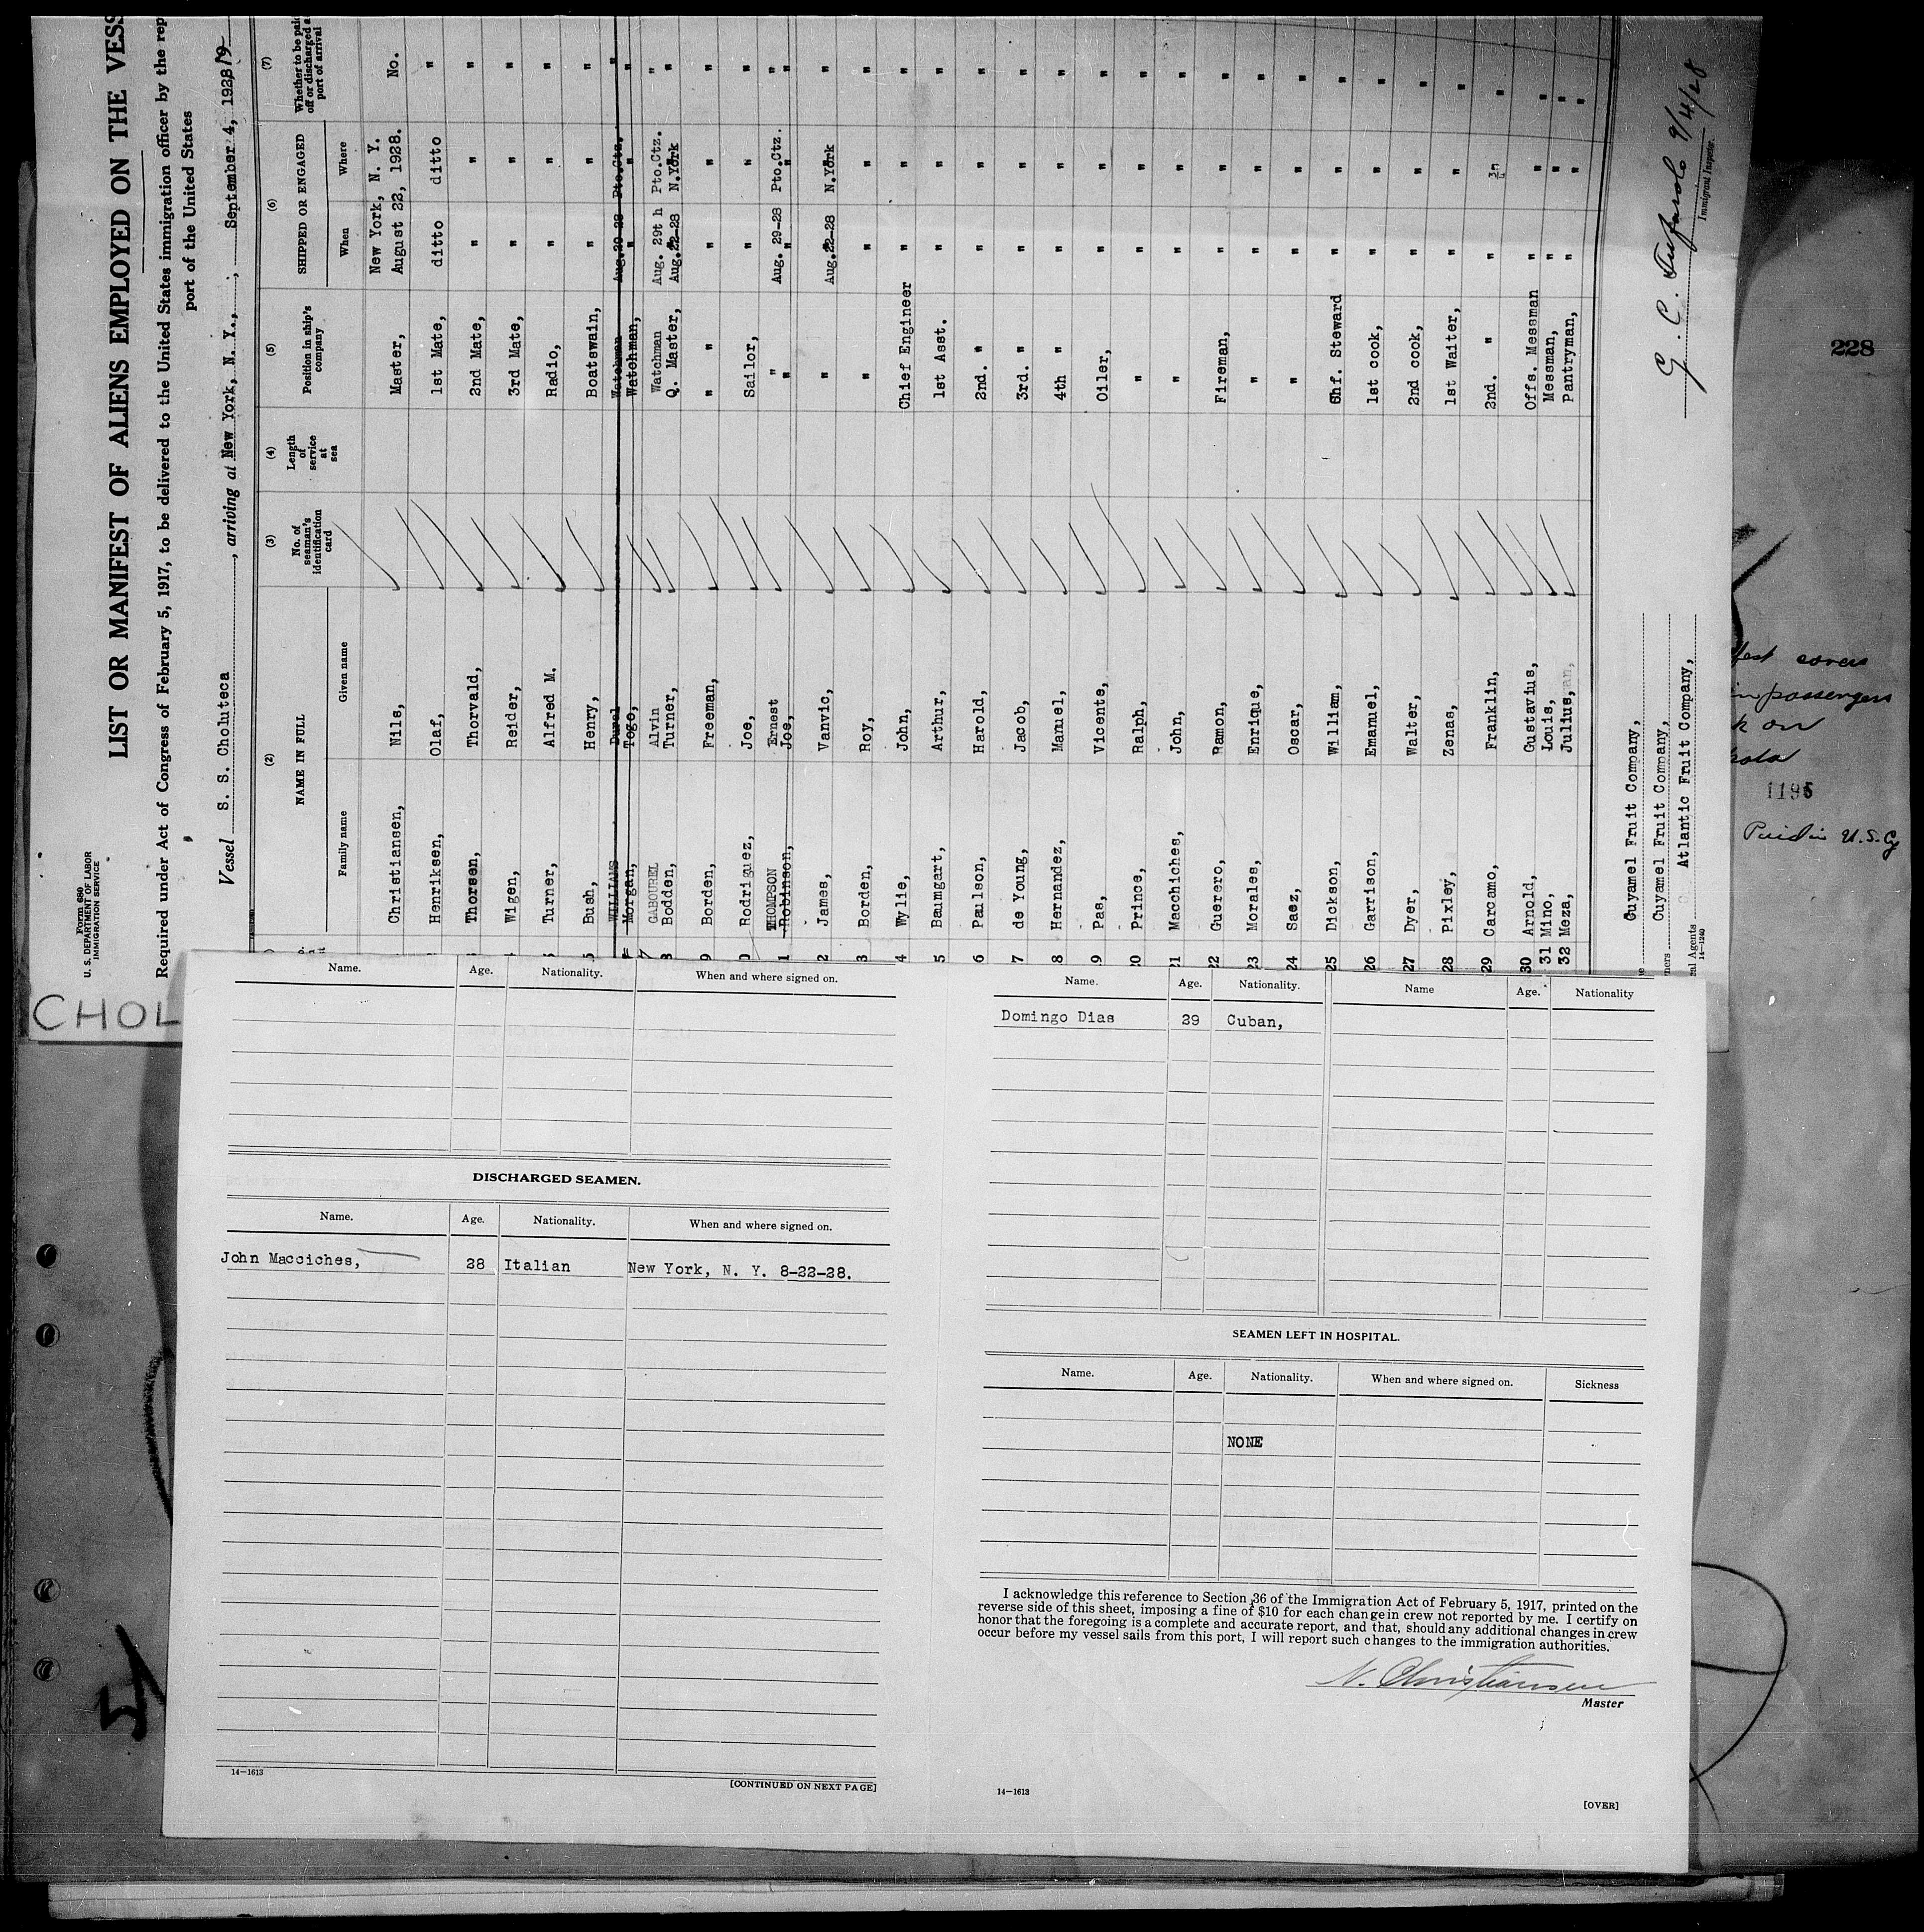 Form 680
U. S. DEPARTMENT OF LABOR
IMMIGRATION SERVICE
LIST OR MANIFEST OF ALIENS EMPLOYED ON THE VESS
Required under Act of Congress of February 5, 1917, to be delivered to the United States immigration officer by the rep
port of the United States
Vessel S. S. Choluteca, arriving at New York, N. Y., ; September 4, 1928
(2) (3) (4) (5) (6) (7)
NAME IN FULL No. of seaman's identification card Length of service at sea Position in ship's company SHIPPED OR ENGAGED Whether to be paid off or discharged at port of arrival
Family name Given name When Where
New York, N. Y.
Christiansen, Nils, Master, August 22, 1928. No.
Henriksen, Olaf, 1st Mate, ditto ditto "
Thorsen, Thorvald, 2nd Mate, " " "
Wigen, Reider, 3rd Mate, " " "
Turner, Alfred M. Radio, " " "
5 Bush, Henry, Boatswain, " " "
WILLIAMS Watchman Aug. Pto.Ctz. "
Morgan, Togo, Watchman, " " "
7 GABOUREL Alvin Watchman Aug. 29th Pto.Ctz. "
8 Bodden, Turner, Q. Master, Aug.22-28 N.York "
9 Borden, Freeman, " " " "
0 Rodriguez, Joe, Sailor, " " "
THOMPSON Ernest " Aug. 29-28 Pto.Ctz. "
1 Robinson, Joe, " " " "
2 James, Vanvic, " Aug.22-28 N.York "
3 Borden, Roy, " " " "
4 Wylie, John, Chief Engineer " " "
5 Baumgart, Arthur, 1st Asst. " " "
6 Paulson, Harold, 2nd. " " " "
7 de Young, Jacob, 3rd. " " " "
8 Hernandez, Manuel, 4th " " " "
9 Pas, Vicente, Oiler, " " "
20 Prince, Ralph, " " " "
21 Macchiches, John, " " " "
22 Guerero, Ramon, Fireman, " " "
23 Morales, Enrique, " " " "
24 Saez, Oscar, " " " "
25 Dickson, William, Chf. Steward " " "
26 Garrison, Emanuel, 1st cook, " " "
27 Dyer, Walter, 2nd cook, " " "
28 Pixley, Zenas, 1st Waiter, " " "
29 Carcamo, Franklin, 2nd. " " "
30 Arnold, Gustavius, Offs. Messman " " "
31 Mino, Louis, Messman, " " "
32 Meza, Julius, Pantryman, " " "
Cuyamel Fruit Company,
ners Cuyamel Fruit Company,
al Agents Atlantic Fruit Company,
14-1240
G. C. 9/4/28
Immigrant Inspector.
228
fest covers
in passengers
k on
1195
Paid in U.S. Cy
CHOL
Name. Age. Nationality. When and where signed on.
DISCHARGED SEAMEN.
Name. Age. Nationality. When and where signed on.
John Macciches, 28 Italian New York, N. Y. 8-22-28.
14-1613
[CONTINUED ON NEXT PAGE]
Name. Age. Nationality. Name Age. Nationality
Domingo Dias 29 Cuban,
SEAMEN LEFT IN HOSPITAL.
Name. Age. Nationality. When and where signed on. Sickness
NONE
I acknowledge this reference to Section 36 of the Immigration Act of February 5, 1917, printed on the
reverse side of this sheet, imposing a fine of $10 for each change in crew not reported by me. I certify on
honor that the foregoing is a complete and accurate report, and that, should any additional changes in crew
occur before my vessel sails from this port, I will report such changes to the immigration authorities.
N. Christiansen
Master
14-1613
[OVER]